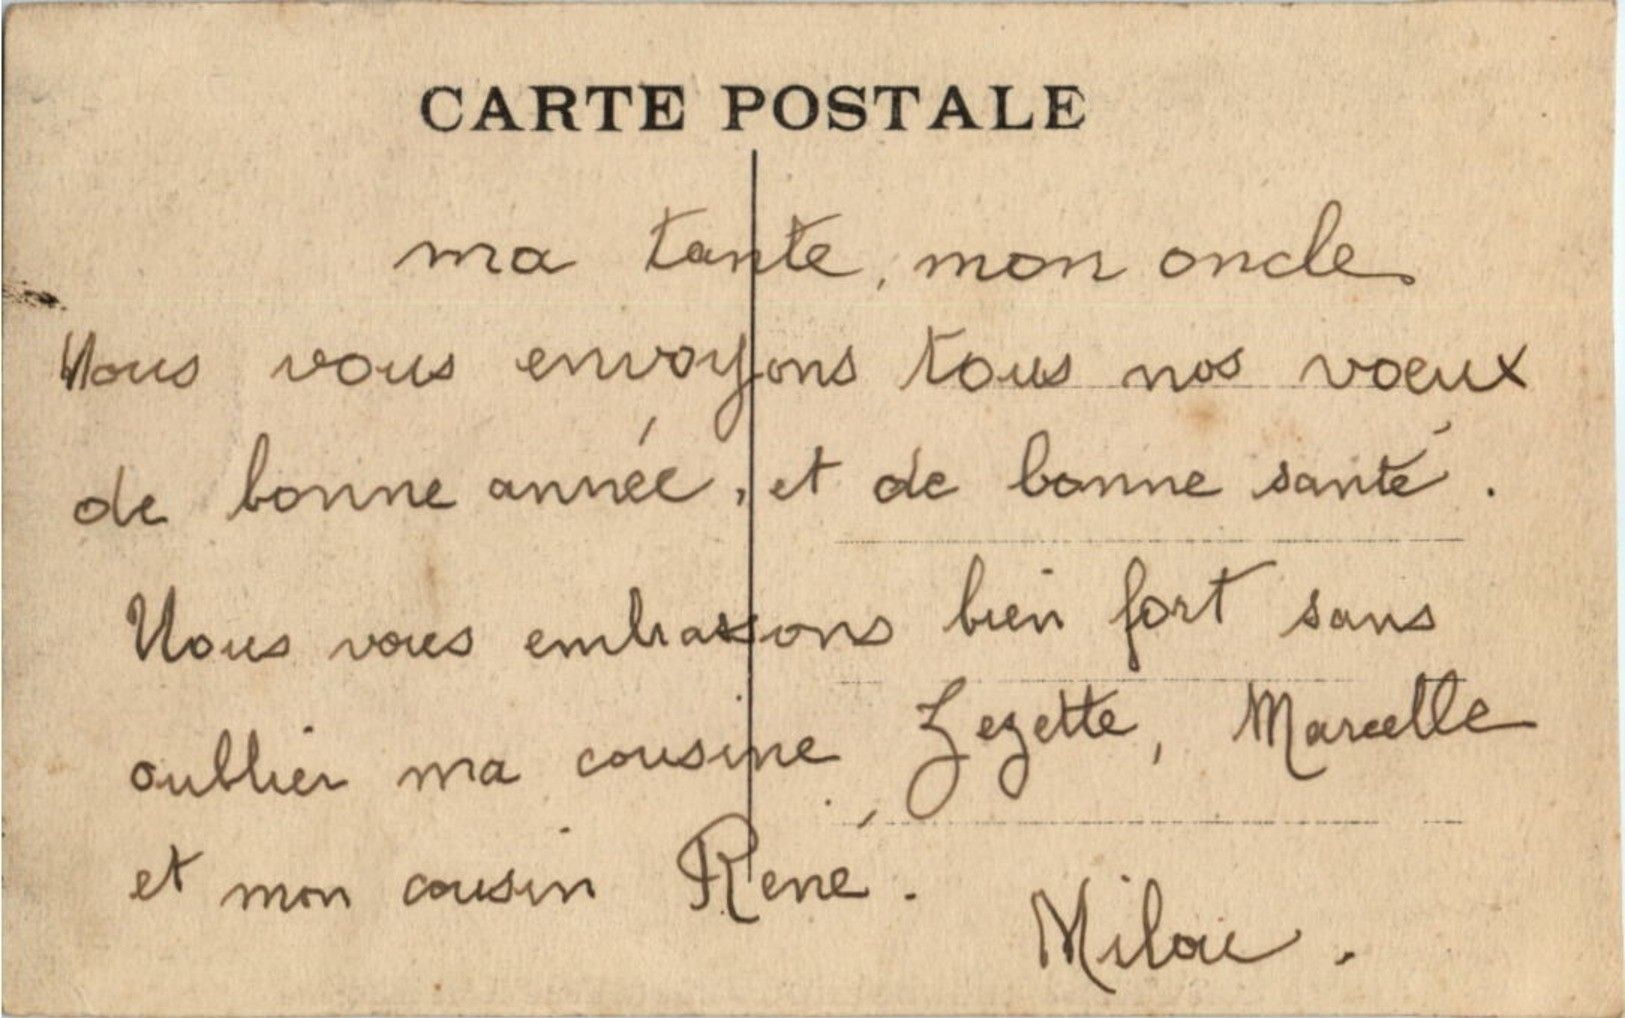 CARTE POSTALE
ma tante, mon oncle
Nous vous envoyons tous nos voeux
de bonne année, et de bonne santé.
Nous vous embrassons bien fort sans
oublier ma cousine, Zezette, Marcelle
et mon cousin René.
Milou.